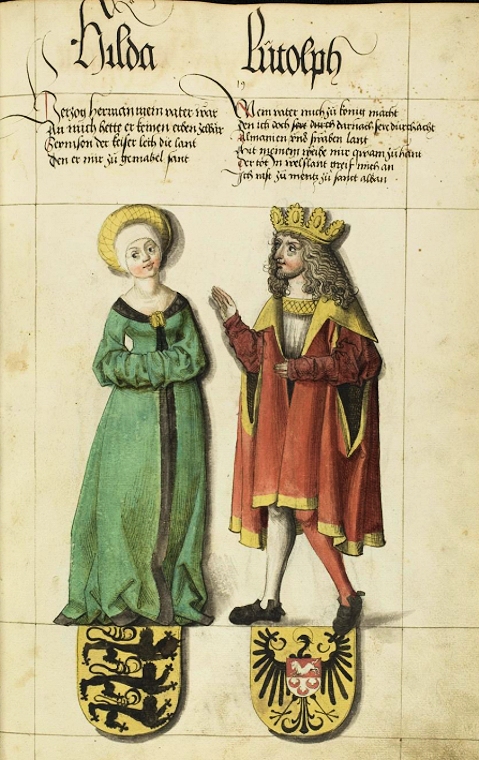 Hilda
Lütolph
Herzog herman mein vater war
An mich hette er keinen erben zwar
Der keiser leih die lant
Den er mir zu gemahel sant
Mein vater mich zu konig macht
Den ich doch darnach sere durchacht
Almanien vnd swaben lant
Mit meinem weibe mir qwam zu hant
Der tot in welslant greif mich an
Ich rast zu mentz zu sanct alban